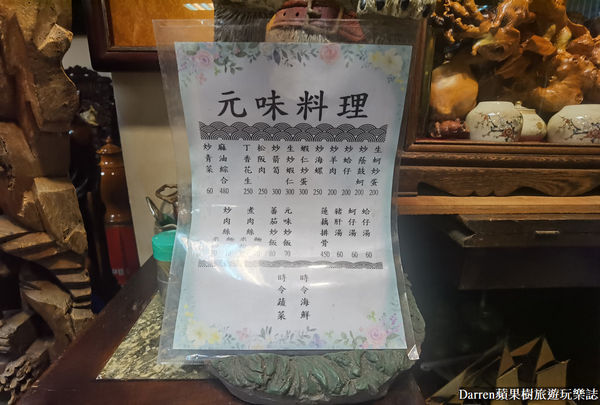 元味料理
生蚵炒蛋 200
炒蔭鼓蚵 200
炒蛤仔 200
炒羊肉 200
炒海螺 250
蝦仁炒蛋 300
生炒蝦仁 300
炒箭筍 300
松阪肉 250
丁香花生 250
麻油綜合 480
炒青菜 60
蛤仔湯 60
蚵仔湯 60
豬肝湯 60
蓮藕排骨 450
元味炒飯 70
蕃茄炒飯 80
煮肉絲
炒肉絲
時令海鮮
時令蔬菜
Darren蘋果樹旅遊玩樂誌